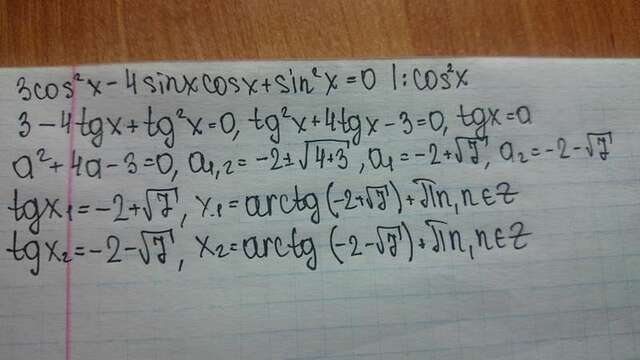 3cos²x - 4sinxcosx + sin²x = 0 |:cos²x
3 - 4tgx + tg²x = 0, tg²x + 4tgx - 3 = 0, tgx = a
a² + 4a - 3 = 0, a₁,₂ = -2 ± √4+3, a₁ = -2 + √7, a₂ = -2 - √7
tgx₁ = -2 + √7, x₁ = arctg(-2 + √7) + πn, n ∈ Z
tgx₂ = -2 - √7, x₂ = arctg(-2 - √7) + πn, n ∈ Z